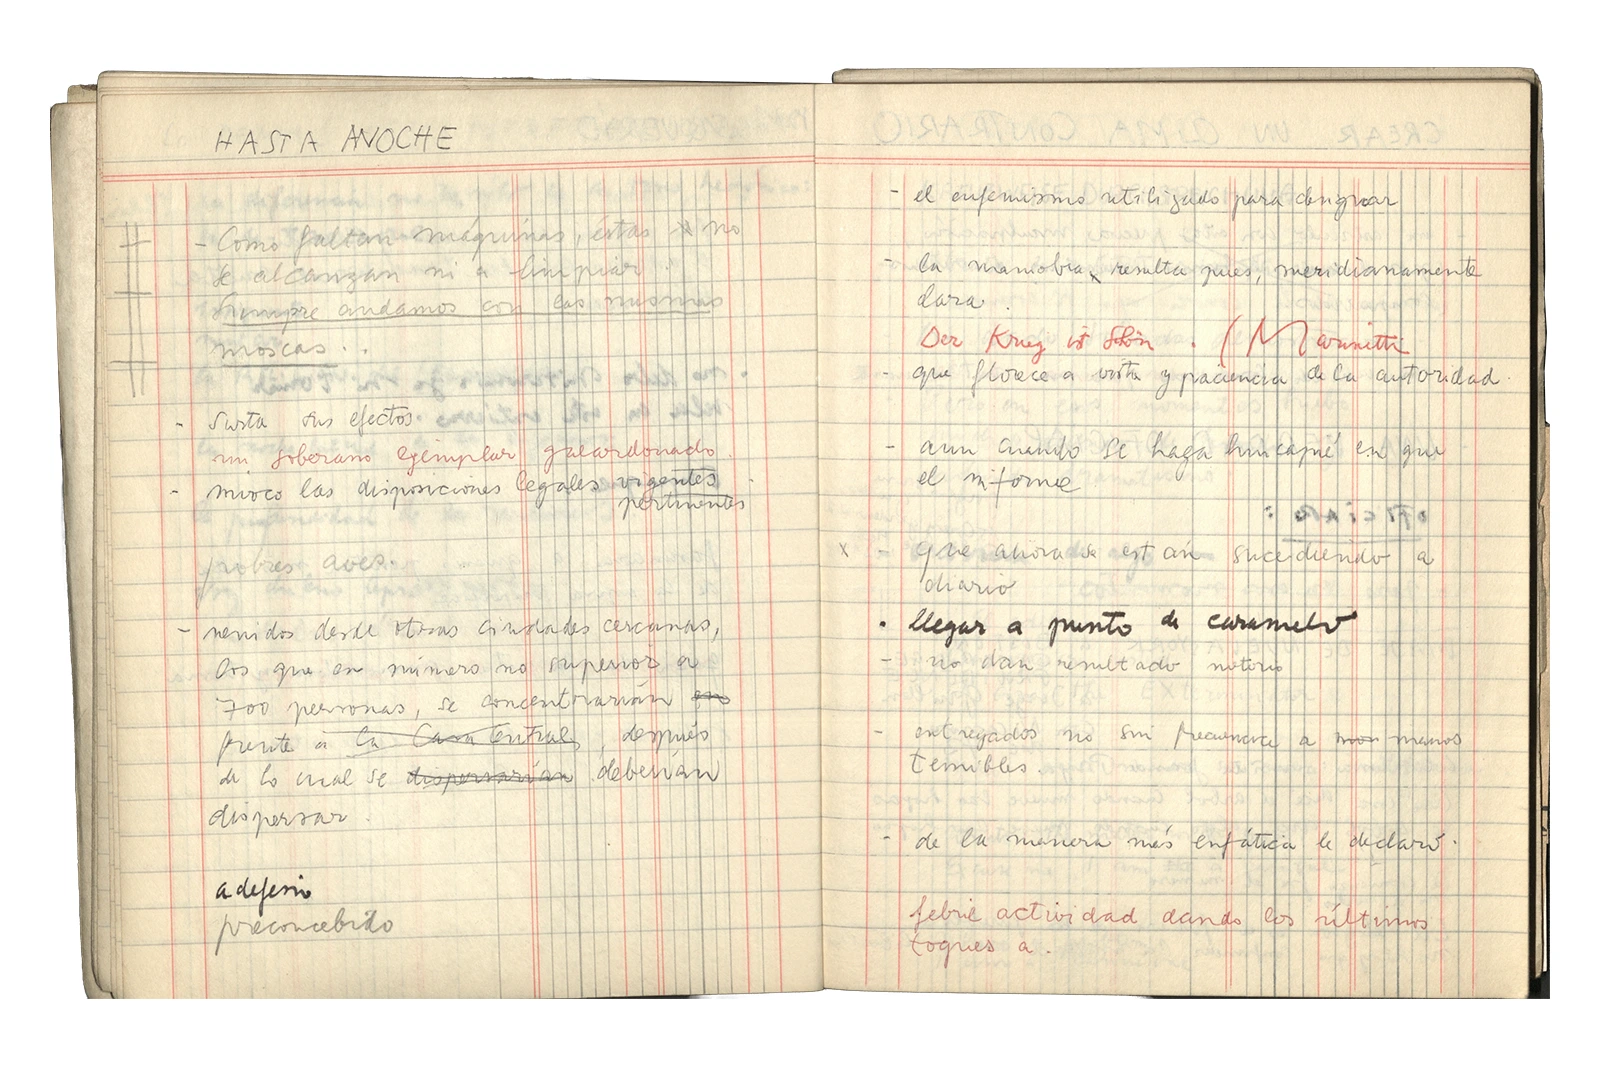 HASTA ANOCHE
- Como faltan máquinas, éstas no
se alcanzan ni a limpiar.
Siempre andamos con las mismas
moscas...
- Surta sus efectos.
un soberano ejemplar galardonado
- invoco las disposiciones legales vigentes
pertinentes
pobres aves.
- venidos desde otras ciudades cercanas,
los que en número no superior a
700 personas, se concentrarían en
frente a la Casa Central, después
de lo cual se dispersarían deberían
dispersar.
adefesio
preconcebido
- el eufemismo utilizado para denigrar
- la maniobra, resulta pues, meridianamente
clara.
Der Krieg ist Schön. (Marinetti
- que florece a vista y paciencia de la autoridad.
- aun cuando se haga hincapié en que
el informe
x - que ahora se están sucediendo a
diario
. llegar a punto de caramelo
- no dan resultado notorio
- entregados no sin frecuencia a menos
temibles.
- de la manera más enfática le declaró.
febril actividad dando los últimos
toques a.